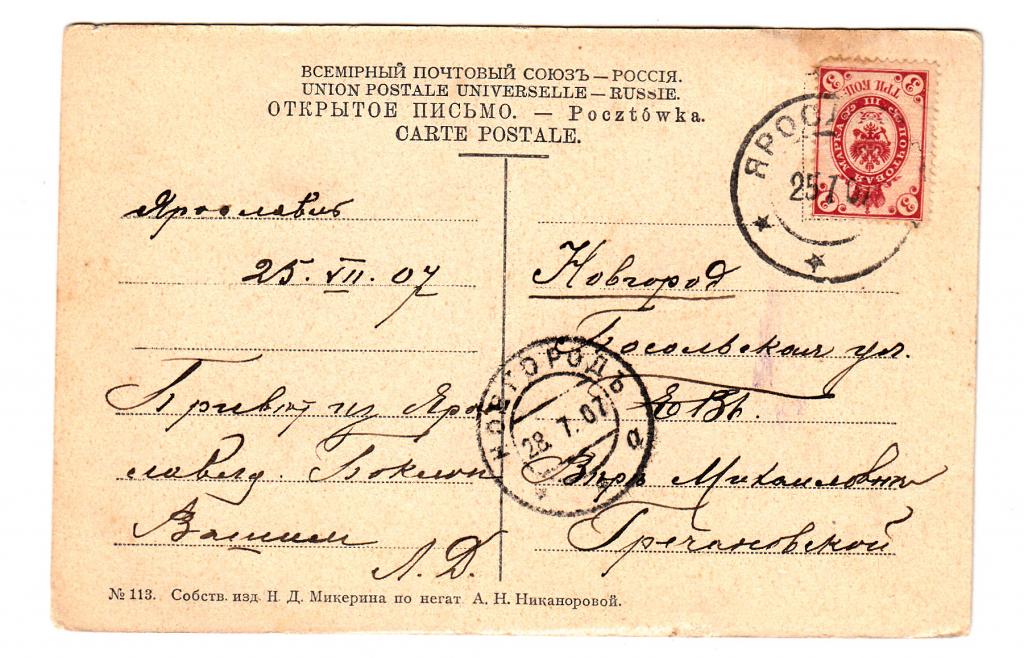 ВСЕМІРНЫЙ ПОЧТОВЫЙ СОЮЗЪ — РОССІЯ.
UNION POSTALE UNIVERSELLE — RUSSIE.
ОТКРЫТОЕ ПИСЬМО. — Pocztówka.
CARTE POSTALE.
ТРИ КОП.
ПОЧТОВАЯ МАРКА
3 3 3 3
ЯРОСЛ
25 7 07
Ярославль
25. VII. 07
Привѣт из Яро
славля. Поклон
Вашим
Л. Д.
Новгород
Посольская ул.
Вѣрѣ Михаиловнѣ
Гречановской
НОВГОРОДЪ
28. 7. 07
а
№ 113. Собств. изд. Н. Д. Микерина по негат. А. Н. Никаноровой.